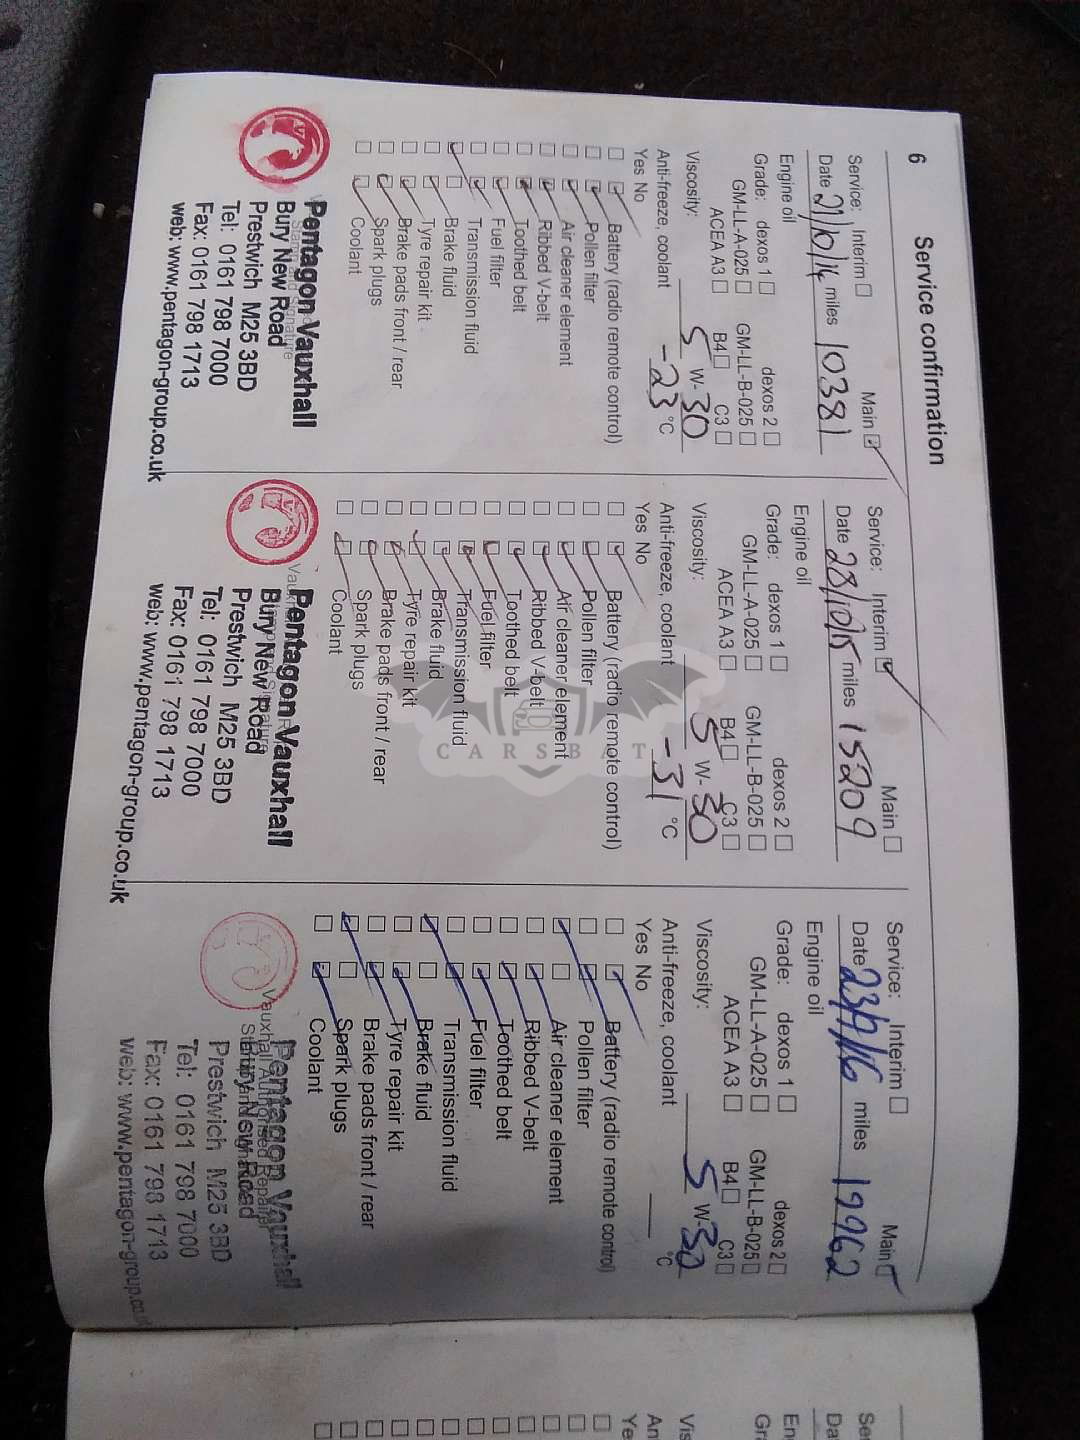 6
Service confirmation
Service: Interim Main
Date 21/10/14 miles 10381
Engine oil
Grade: dexos 1 dexos 2
GM-LL-A-025 GM-LL-B-025
ACEA A3 B4 C3
Viscosity: 5 W-30
Anti-freeze, coolant -23 °C
Yes No
Battery (radio remote control)
Pollen filter
Air cleaner element
Ribbed V-belt
Toothed belt
Fuel filter
Transmission fluid
Brake fluid
Tyre repair kit
Brake pads front / rear
Spark plugs
Coolant
Pentagon Vauxhall
Bury New Road
Prestwich M25 3BD
Tel: 0161 798 7000
Fax: 0161 798 1713
web: www.pentagon-group.co.uk
Service: Interim Main
Date 28/10/15 miles 15209
Engine oil
Grade: dexos 1 dexos 2
GM-LL-A-025 GM-LL-B-025
ACEA A3 B4 C3
Viscosity: 5 W-30
Anti-freeze, coolant -31 °C
Yes No
Battery (radio remote control)
Pollen filter
Air cleaner element
Ribbed V-belt
Toothed belt
Fuel filter
Transmission fluid
Brake fluid
Tyre repair kit
Brake pads front / rear
Spark plugs
Coolant
Pentagon Vauxhall
Bury New Road
Prestwich M25 3BD
Tel: 0161 798 7000
Fax: 0161 798 1713
web: www.pentagon-group.co.uk
Service: Interim Main
Date miles 19962
Engine oil
Grade: dexos 1 dexos 2
GM-LL-A-025 GM-LL-B-025
ACEA A3 B4 C3
Viscosity: 5 W-30
Anti-freeze, coolant °C
Yes No
Battery (radio remote control)
Pollen filter
Air cleaner element
Ribbed V-belt
Toothed belt
Fuel filter
Transmission fluid
Brake fluid
Tyre repair kit
Brake pads front / rear
Spark plugs
Coolant
Vauxhall Authorised Repairer
Pentagon Vauxhall
Bury New Road
Prestwich M25 3BD
Tel: 0161 798 7000
Fax: 0161 798 1713
web: www.pentagon-group.co.u
CARSBAT
Se
Da
En
Gr
Vis
An
Ye